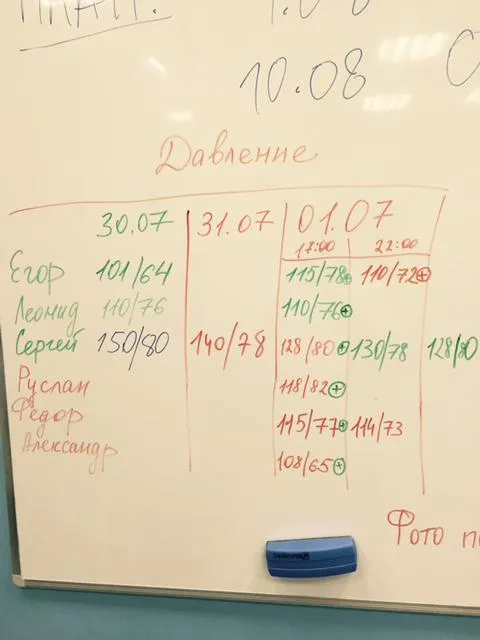 ПЛАН.
10.08
Давление
30.07 31.07 01.07
17:00 22:00
Егор 101/64 115/78 110/72
Леонид 110/76 110/76
Сергей 150/80 140/78 128/80 130/78 128/80
Руслан 118/82
Федор 115/77 114/73
Александр 108/65
Фото